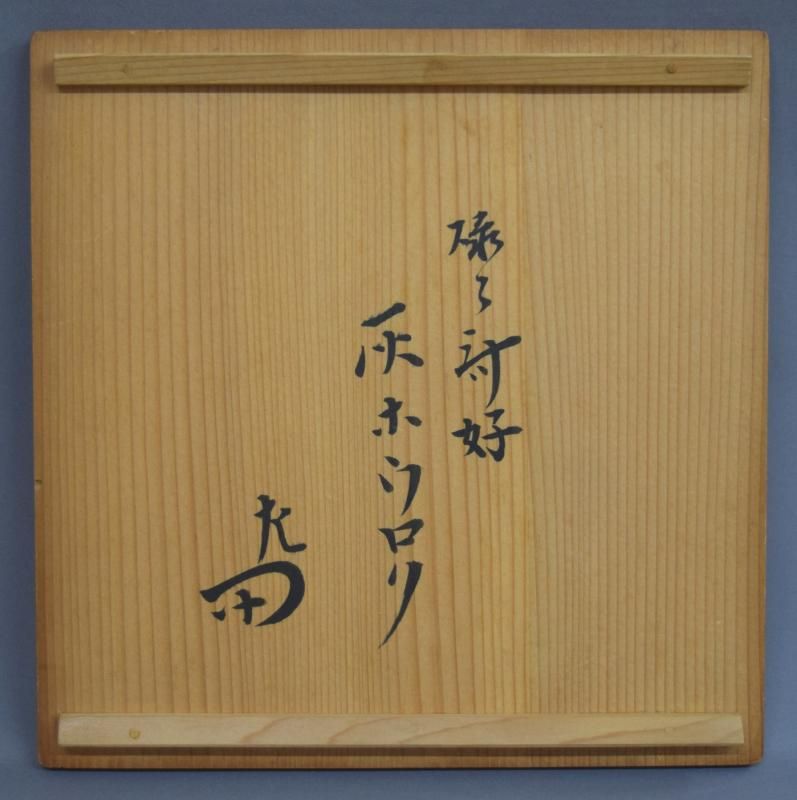 碌々斎好
灰ホウロク